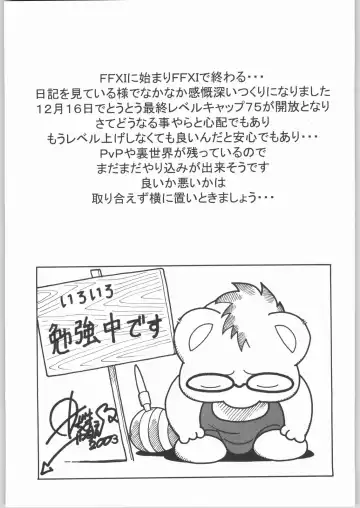 FFXIに始まりFFXIで終わる・・・
日記を見ている様でなかなか感慨深いつくりになりました
12月16日でとうとう最終レベルキャップ75が開放となり
さてどうなる事やらと心配でもあり
もうレベル上げしなくても良いんだと安心でもあり・・・
PvPや裏世界が残っているので
まだまだやり込みが出来そうです
良いか悪いかは
取り合えず横に置いときましょう・・・
いろいろ
勉強中です
2003